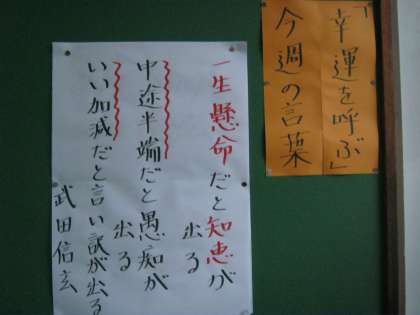 「幸運を呼ぶ」
今週の言葉
一生懸命だと知恵が
出る
中途半端だと愚痴が
出る
いい加減だと言い訳が出る
武田信玄